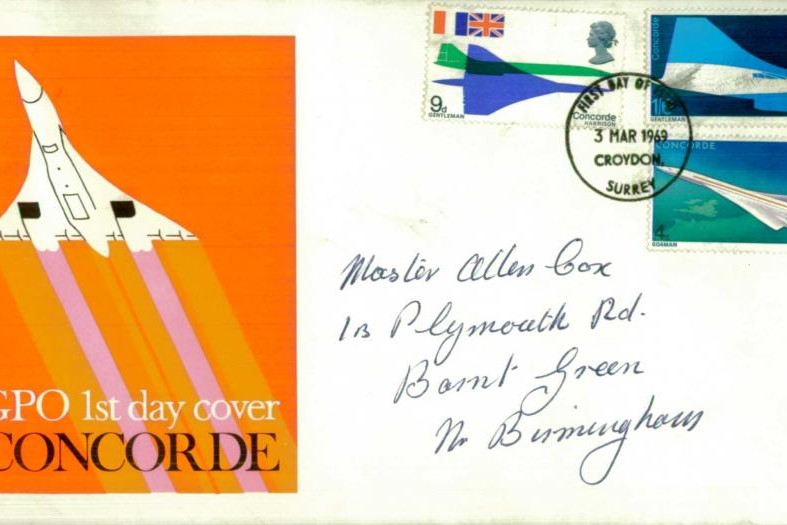 9d
GENTLEMAN
Concorde
HARRISON
Concorde
1/6
GENTLEMAN
FIRST DAY OF
3 MAR 1969
CROYDON,
SURREY
CONCORDE
4d
GOAMAN
Master Allen Cox
1B Plymouth Rd.
Barnt Green
Nr Birmingham
GPO 1st day cover
CONCORDE